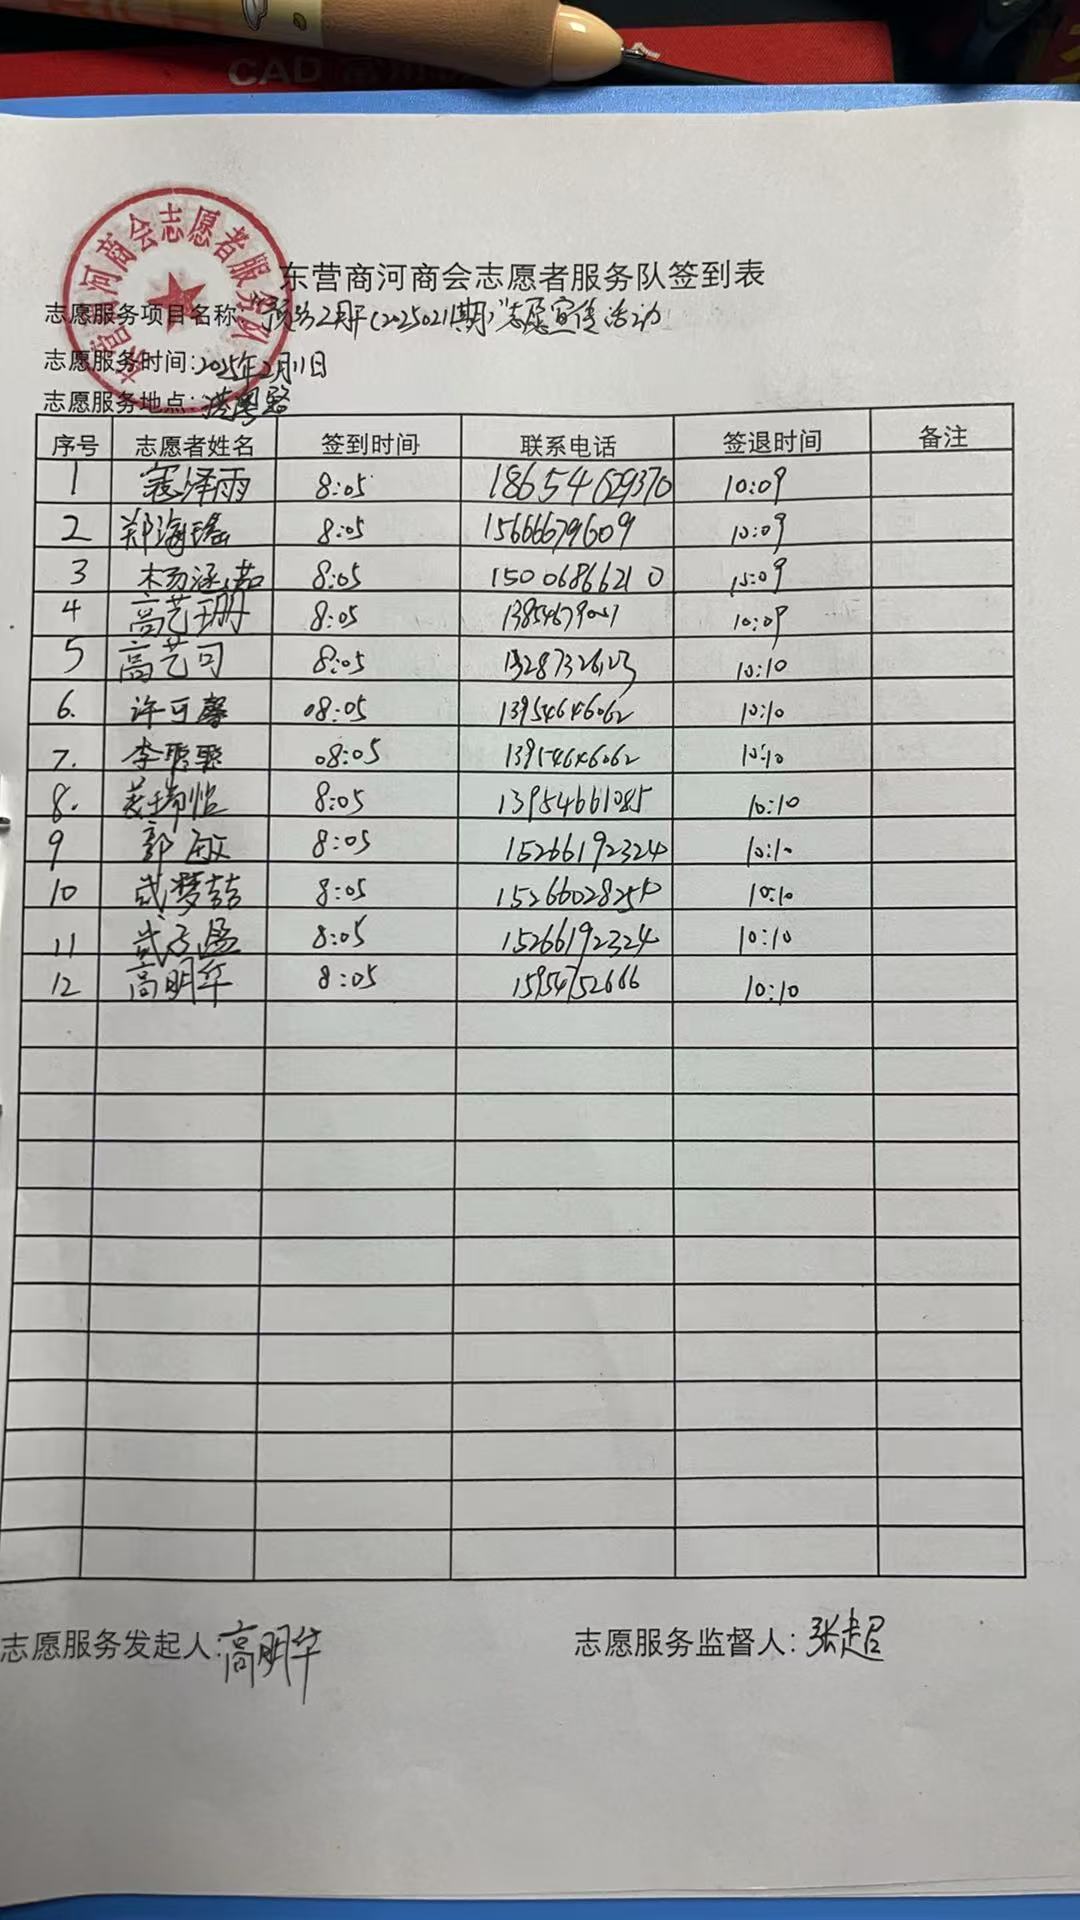 CAD
东营商河商会志愿者服务队
东营商河商会志愿者服务队签到表
志愿服务项目名称: (20250211期)"志愿宣传活动
志愿服务时间:2025年2月11日
志愿服务地点:
序号 志愿者姓名 签到时间 联系电话 签退时间 备注
1 寇泽雨 8:05 18654629370 10:09
2 郑海瑶 8:05 15666679609 10:09
3 杨涵茹 8:05 15006866210 10:09
4 高艺珊 8:05 10:09
5 高艺可 8:05 10:10
6. 许可馨 08:05 13954646062 10:10
7. 李 08:05 13954646062 10:10
8. 姜瑞怡 8:05 13954661085 10:10
9 郭敏 8:05 15266192324 10:10
10 武梦喆 8:05 10:10
11 武子 8:05 15266192324 10:10
12 高明华 8:05 15954752666 10:10
志愿服务发起人:高明华 志愿服务监督人:张超